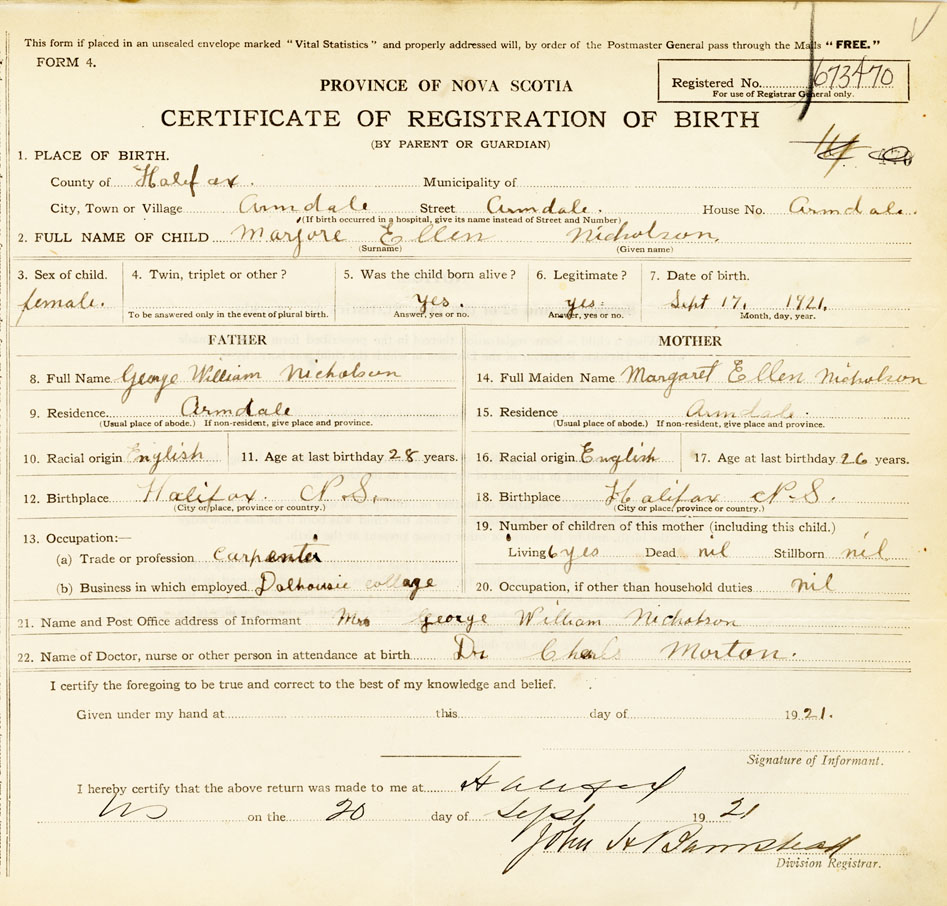 This form if placed in an unsealed envelope marked "Vital Statistics" and properly addressed will, by order of the Postmaster General pass through the Mails "FREE."
FORM 4.
Registered No. 673470
For use of Registrar General only.
PROVINCE OF NOVA SCOTIA
CERTIFICATE OF REGISTRATION OF BIRTH
(BY PARENT OR GUARDIAN)
1. PLACE OF BIRTH.
County of Halifax. Municipality of
City, Town or Village Armdale Street Armdale. House No. Armdale.
(If birth occurred in a hospital, give its name instead of Street and Number)
2. FULL NAME OF CHILD Marjore Ellen Nicholson
(Surname) (Given name)
3. Sex of child. 4. Twin, triplet or other? 5. Was the child born alive? 6. Legitimate? 7. Date of birth.
female. yes. yes. Sept 17. 1921.
To be answered only in the event of plural birth. Answer, yes or no. Answer, yes or no. Month, day, year.
FATHER MOTHER
8. Full Name George William Nicholson 14. Full Maiden Name Margaret Ellen Nicholson
9. Residence Armdale 15. Residence Armdale.
(Usual place of abode.) If non-resident, give place and province. (Usual place of abode.) If non-resident, give place and province.
10. Racial origin English 11. Age at last birthday 28 years. 16. Racial origin English 17. Age at last birthday 26 years.
12. Birthplace Halifax. N.S. 18. Birthplace Halifax N.S.
(City or place, province or country.) (City or place, province or country.)
13. Occupation:— 19. Number of children of this mother (including this child.)
(a) Trade or profession carpenter Living 6 yes Dead nil Stillborn nil
(b) Business in which employed Dalhousie collage 20. Occupation, if other than household duties nil
21. Name and Post Office address of Informant Mrs George William Nicholson
22. Name of Doctor, nurse or other person in attendance at birth Dr Charls Morton.
I certify the foregoing to be true and correct to the best of my knowledge and belief.
Given under my hand at this day of 1921.
Signature of Informant.
I hereby certify that the above return was made to me at Halifax
NS on the 20 day of Sept 1921
John H Barnstead
Division Registrar.